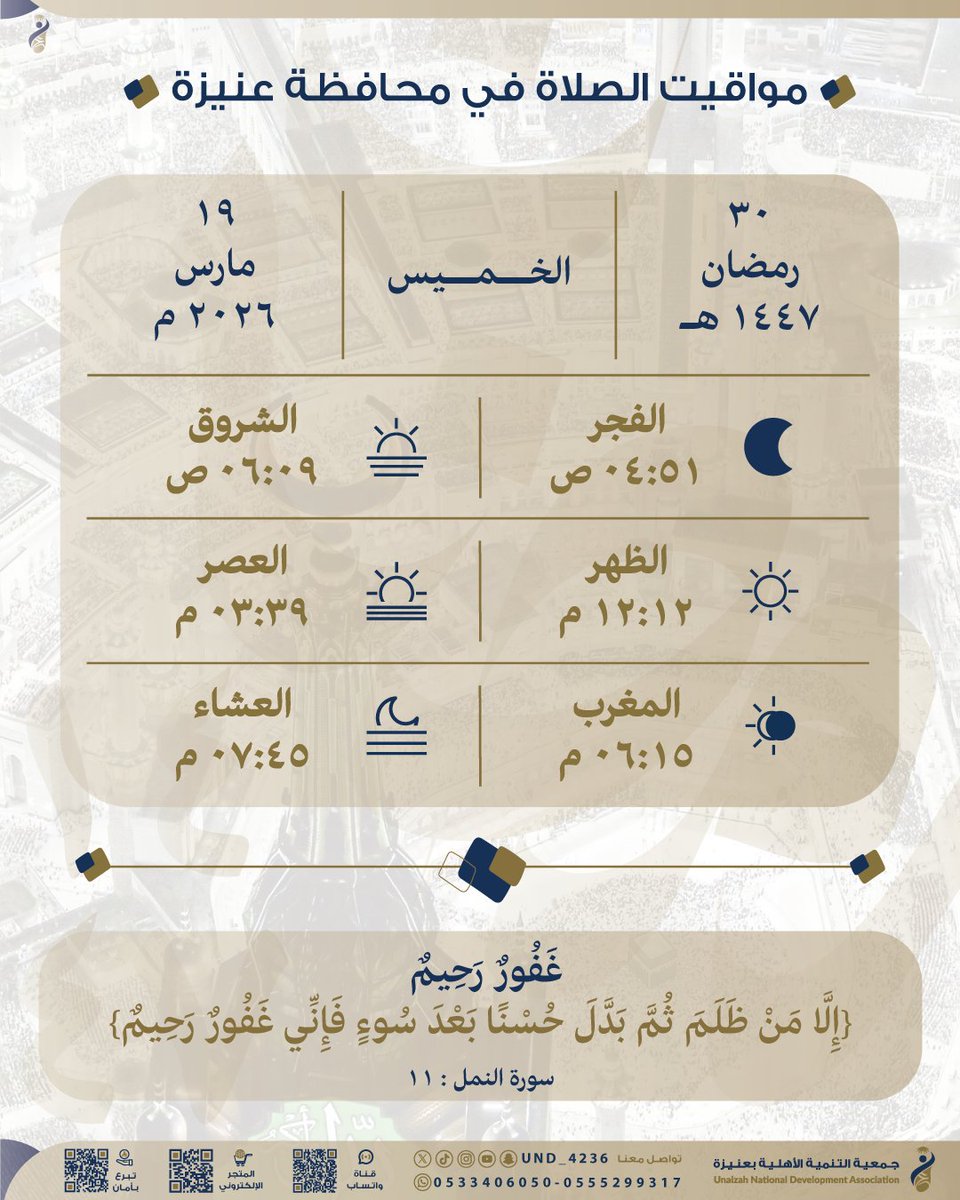 مواقيت الصلاة في محافظة عنيزة
٣٠
رمضان
١٤٤٧ هـ
الخـــمـــيس
١٩
مارس
٢٠٢٦ م
الفجر
٠٤:٥١ ص
الشروق
٠٦:٠٩ ص
الظهر
١٢:١٢ م
العصر
٠٣:٣٩ م
المغرب
٠٦:١٥ م
العشاء
٠٧:٤٥ م
غَفُورٌ رَحِيمٌ
{إِلَّا مَنْ ظَلَمَ ثُمَّ بَدَّلَ حُسْنًا بَعْدَ سُوءٍ فَإِنِّي غَفُورٌ رَحِيمٌ}
سورة النمل : ١١
جمعية التنمية الأهلية بعنيزة
Unaizah National Development Association
تواصل معنا UND_4236
0533406050-0555299317
قناة
واتساب
المتجر
الإلكتروني
تبرع
بأمان